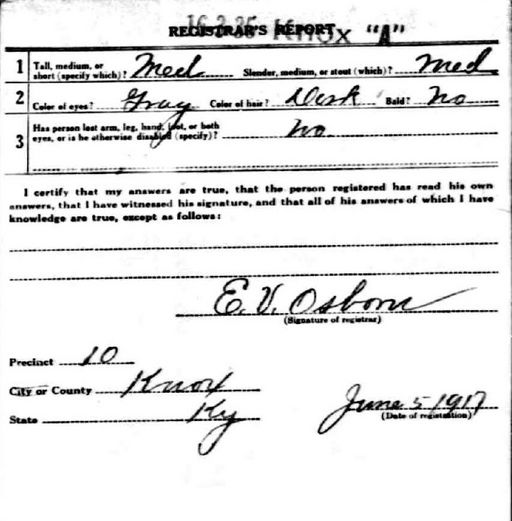 16-2-25
REGISTRAR'S REPORT Knox "A"
1 Tall, medium, or short (specify which)? Med Slender, medium, or stout (which)? Med
2 Color of eyes? Gray Color of hair? Dark Bald? No
3 Has person lost arm, leg, hand, foot, or both
eyes, or is he otherwise disabled (specify)? No
I certify that my answers are true, that the person registered has read his own
answers, that I have witnessed his signature, and that all of his answers of which I have
knowledge are true, except as follows:
E. V. Osborn
(Signature of registrar)
Precinct 10
City or County Knox
State Ky
June 5 1917
(Date of registration)